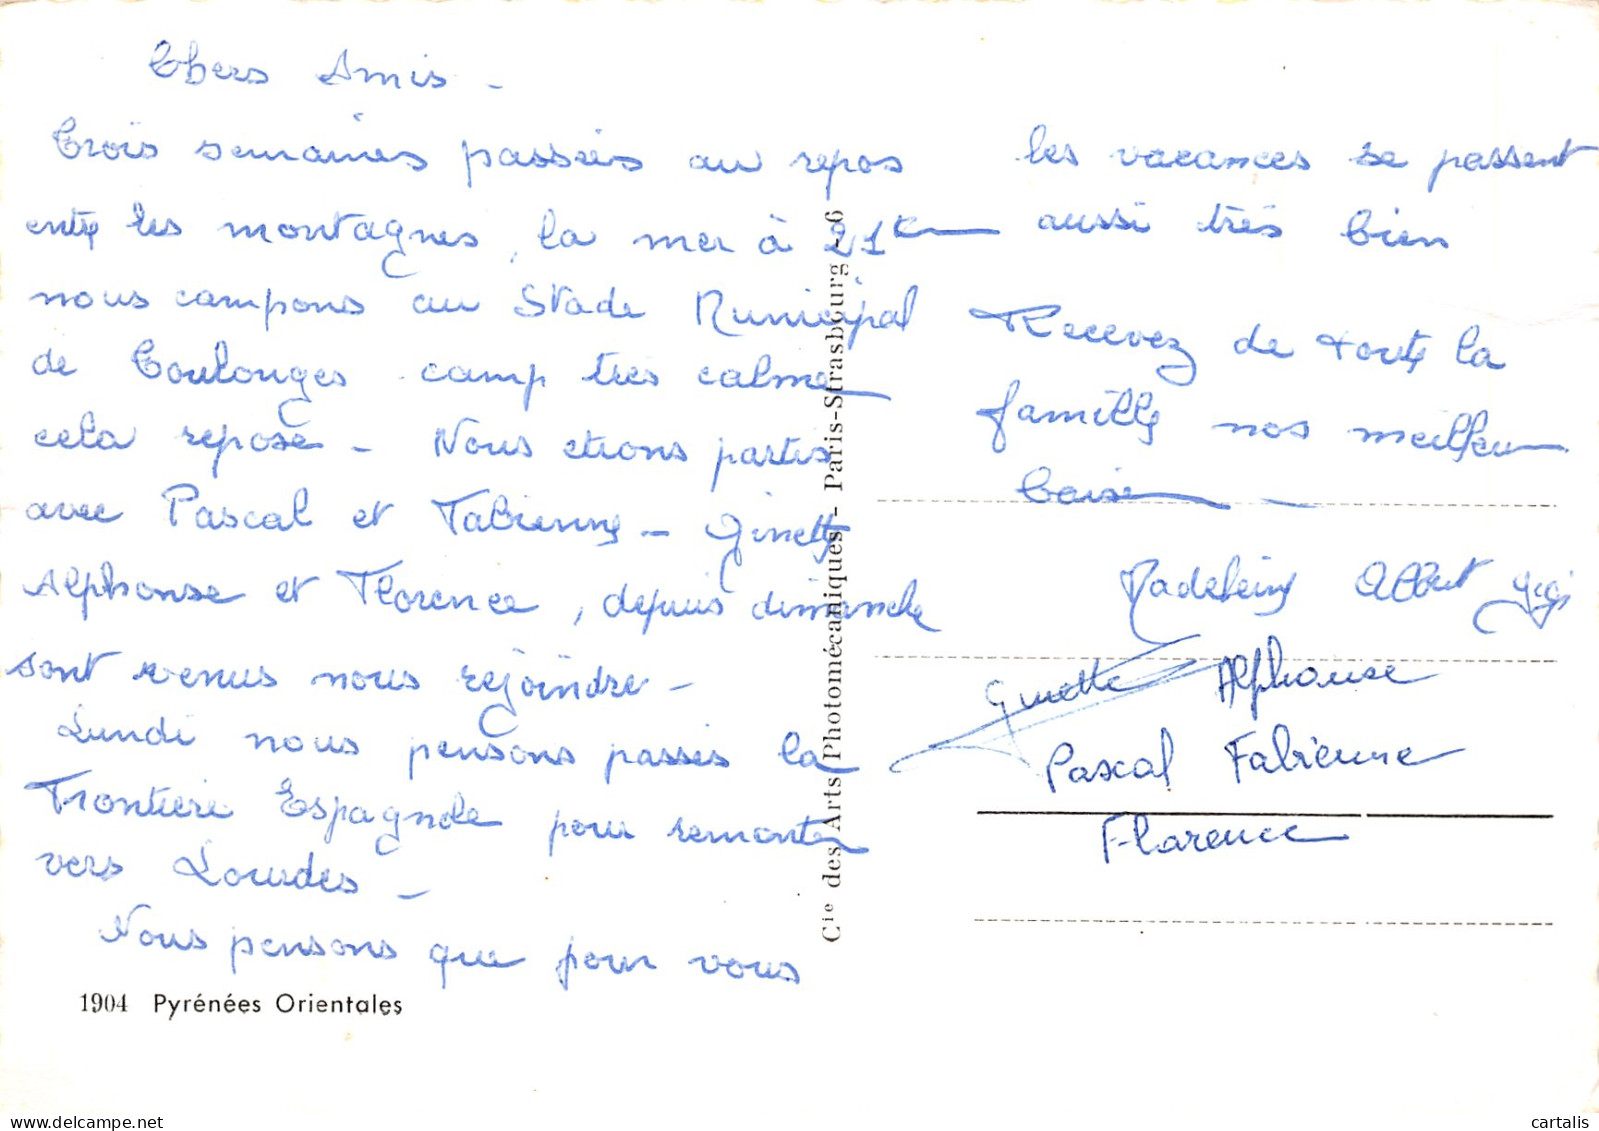 Chers Amis -
Trois semaines passées au repos
entre les montagnes, la mer à 21 km
nous campons au Stade Municipal
de Coulonges camp très calme
cela repose - Nous etions partis
avec Pascal et Fabienne - Ginette
Alphonse et Florence, depuis dimanche
sont venus nous rejoindre -
Lundi nous pensons passer la
Frontière Espagnole pour remonter
vers Lourdes -
Nous pensons que pour vous
1904 Pyrénées Orientales
Cie des Arts Photomécaniques - Paris-Strasbourg - 6
les vacances se passent
aussi très bien
Recevez de toute la
famille nos meilleurs
baisers -
Madeleine Albert Gigi
Ginette Alphonse
Pascal Fabienne
Florence
cartalis